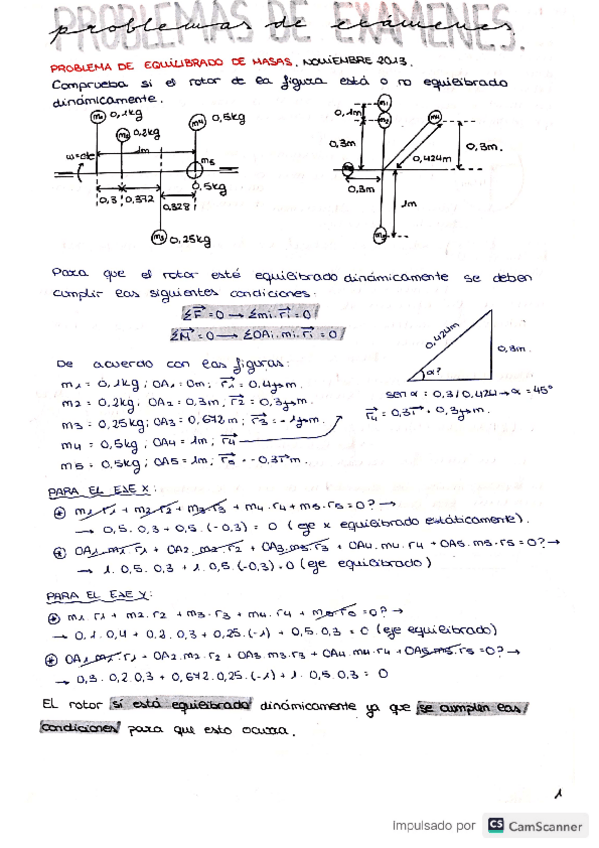 PROBLEMAS DE EXÁMENES.
problemas de exámenes.
PROBLEMA DE EQUILIBRADO DE MASAS. NOVIEMBRE 2013.
Comprueba si el rotor de la figura está o no equilibrado
dinámicamente.
m1 0,1kg
m2 0,2kg
m4 0,5kg
1m
ω=cte
m5
0,5kg
0,3 0,372
0,328
m3 0,25kg
m1
0,1m
m2
m4
0,3m
0,3m.
0,424m
0,3m
1m
Para que el rotor esté equilibrado dinámicamente se deben
cumplir las siguientes condiciones:
ΣF = 0 → Σmi.ri = 0
ΣM = 0 → ΣOAi.mi.ri = 0
De acuerdo con las figuras:
m1 = 0,1kg; OA1 = 0m; r1 = 0,4j m.
m2 = 0,2kg. OA2 = 0,3m, r2 = 0,3j m.
m3 = 0,25kg; OA3 = 0,672m; r3 = -1j m.
m4 = 0,5kg, OA4 = 1m; r4
m5 = 0,5kg; OA5 = 1m; r5 = -0,3i m.
0,424m
0,3m.
α?
sen α = 0,3/0,424 → α = 45º
r4 = 0,3i + 0,3j m.
PARA EL EJE X:
m1.r1 + m2.r2 + m3.r3 + m4.r4 + m5.r5 = 0? →
→ 0,5.0,3 + 0,5.(-0,3) = 0 (eje x equilibrado estáticamente).
OA1.m1.r1 + OA2.m2.r2 + OA3.m3.r3 + OA4.m4.r4 + OA5.m5.r5 = 0? →
→ 1.0,5.0,3 + 1.0,5.(-0,3) = 0 (eje equilibrado)
PARA EL EJE Y:
m1.r1 + m2.r2 + m3.r3 + m4.r4 + m5.r5 = 0? →
→ 0,1.0,4 + 0,2.0,3 + 0,25.(-1) + 0,5.0,3 = 0 (eje equilibrado)
OA1.m1.r1 + OA2.m2.r2 + OA3.m3.r3 + OA4.m4.r4 + OA5.m5.r5 = 0? →
→ 0,3.0,2.0,3 + 0,672.0,25.(-1) + 1.0,5.0,3 = 0
El rotor sí está equilibrado dinámicamente ya que se cumplen las
condiciones para que esto ocurra.
1
Impulsado por CS CamScanner